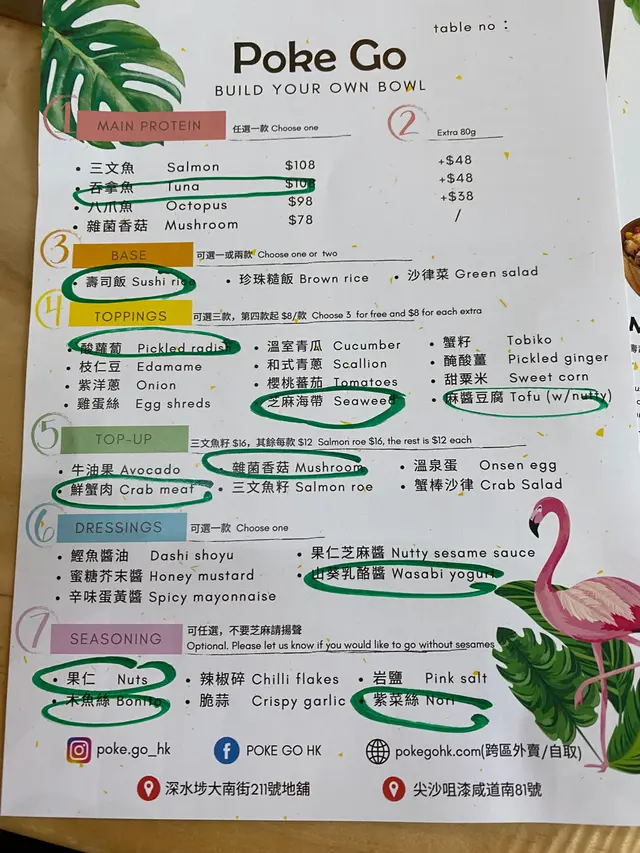 table no :
Poke Go
BUILD YOUR OWN BOWL
1 MAIN PROTEIN 任選一款 Choose one 2 Extra 80g
• 三文魚 Salmon $108 +$48
• 吞拿魚 Tuna $108 +$48
• 八爪魚 Octopus $98 +$38
• 雜菌香菇 Mushroom $78 /
3 BASE 可選一或兩款 Choose one or two
• 壽司飯 Sushi rice • 珍珠糙飯 Brown rice • 沙律菜 Green salad
4 TOPPINGS 可選三款，第四款起 $8/款 Choose 3 for free and $8 for each extra
• 酸蘿蔔 Pickled radish • 溫室青瓜 Cucumber • 蟹籽 Tobiko
• 枝仁豆 Edamame • 和式青蔥 Scallion • 醃酸薑 Pickled ginger
• 紫洋蔥 Onion • 櫻桃蕃茄 Tomatoes • 甜粟米 Sweet corn
• 雞蛋絲 Egg shreds • 芝麻海帶 Seaweed • 麻醬豆腐 Tofu (w/nutty)
5 TOP-UP 三文魚籽 $16，其餘每款 $12 Salmon roe $16, the rest is $12 each
• 牛油果 Avocado • 雜菌香菇 Mushroom • 溫泉蛋 Onsen egg
• 鮮蟹肉 Crab meat • 三文魚籽 Salmon roe • 蟹棒沙律 Crab Salad
6 DRESSINGS 可選一款 Choose one
• 鰹魚醬油 Dashi shoyu • 果仁芝麻醬 Nutty sesame sauce
• 蜜糖芥末醬 Honey mustard • 山葵乳酪醬 Wasabi yogurt
• 辛味蛋黃醬 Spicy mayonnaise
7 SEASONING 可任選，不要芝麻請揚聲
Optional. Please let us know if you would like to go without sesames
• 果仁 Nuts • 辣椒碎 Chilli flakes • 岩鹽 Pink salt
• 木魚絲 Bonito • 脆蒜 Crispy garlic • 紫菜絲 Nori
poke.go_hk POKE GO HK pokegohk.com(跨區外賣/自取)
深水埗大南街211號地舖 尖沙咀漆咸道南81號